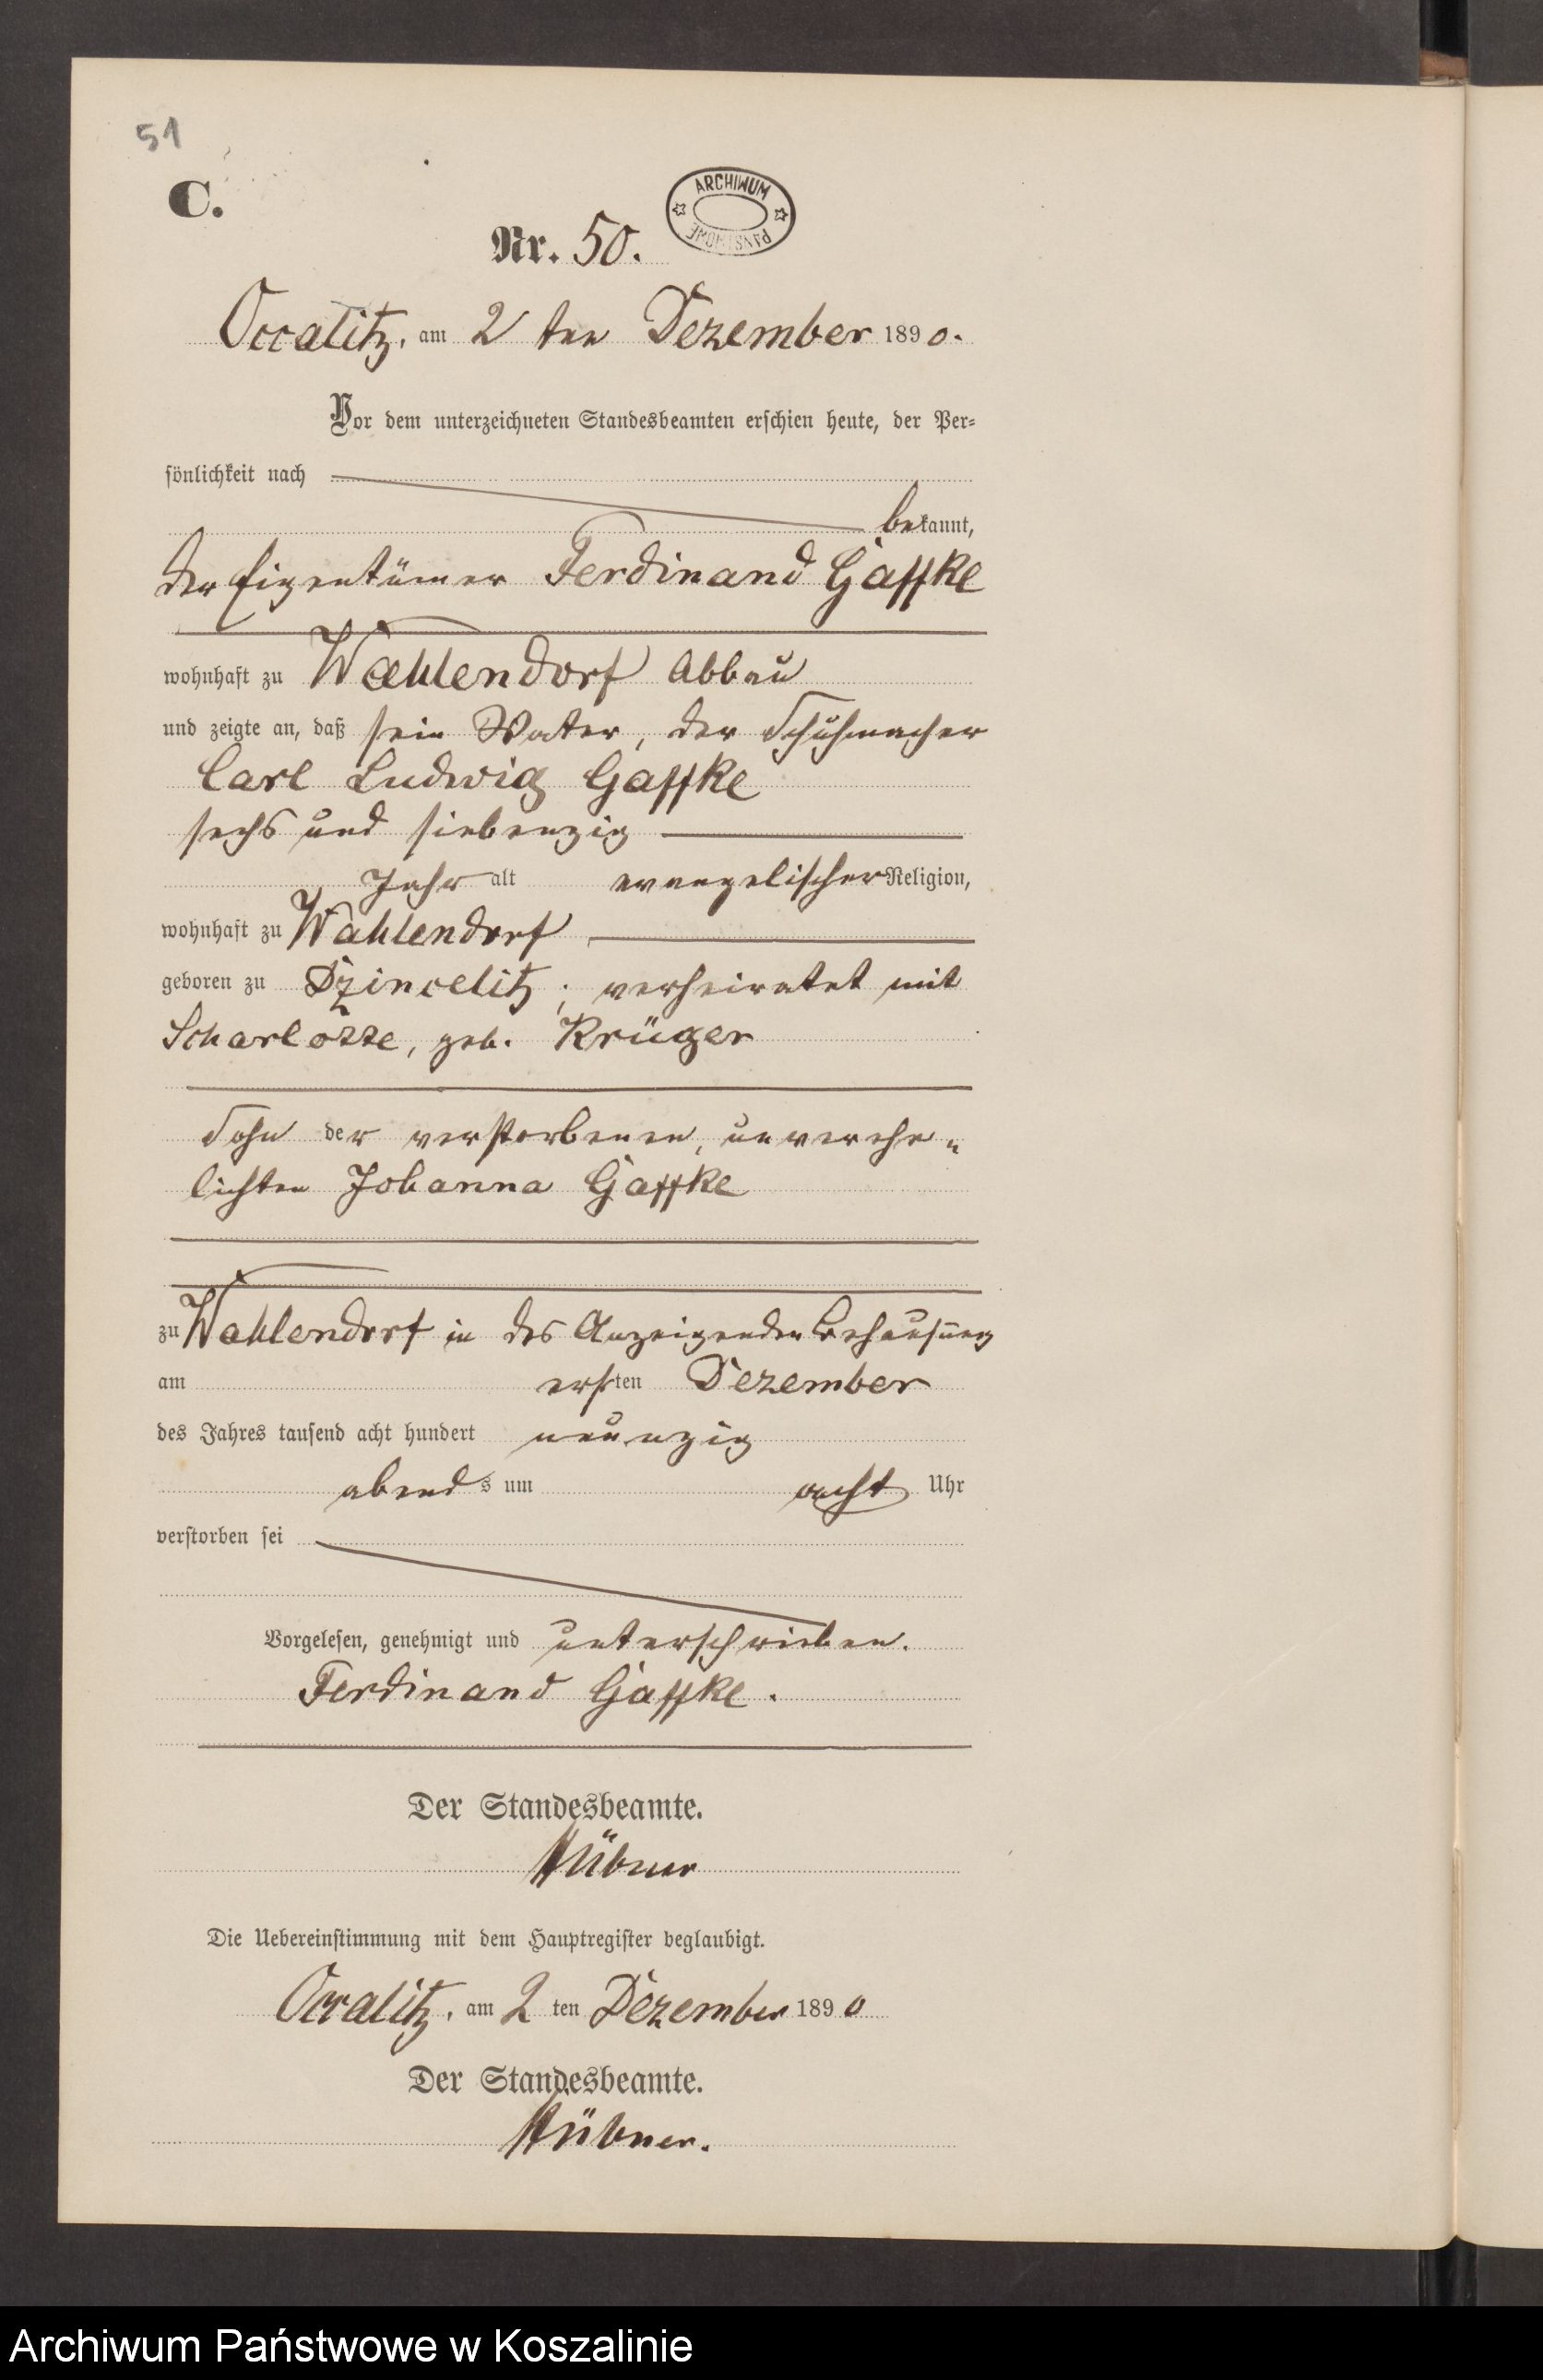 51
C.
ARCHIWUM
PAŃSTWOWE
Nr. 50.
Occalitz, am 2 ten Dezember 1890.
Vor dem unterzeichneten Standesbeamten erschien heute, der Per-
sönlichkeit nach
bekannt,
der Eigentümer Ferdinand Gaffke
wohnhaft zu Wahlendorf Abbau
und zeigte an, daß sein Vater, der Schuhmacher
Carl Ludwig Gaffke
sechs und siebenzig
Jahr alt evangelischer Religion,
wohnhaft zu Wahlendorf
geboren zu Dzincelitz; verheiratet mit
Scharlotte, geb. Krüger
Sohn der verstorbenen, unverehe-
lichten Johanna Gaffke
zu Wahlendorf in des Anzeigenden Behausung
am ersten Dezember
des Jahres tausend acht hundert neunzig
abends um acht Uhr
verstorben sei
Vorgelesen, genehmigt und unterschrieben.
Ferdinand Gaffke.
Der Standesbeamte.
Hübner
Die Uebereinstimmung mit dem Hauptregister beglaubigt.
Occalitz, am 2 ten Dezember 1890
Der Standesbeamte.
Hübner.
Archiwum Państwowe w Koszalinie